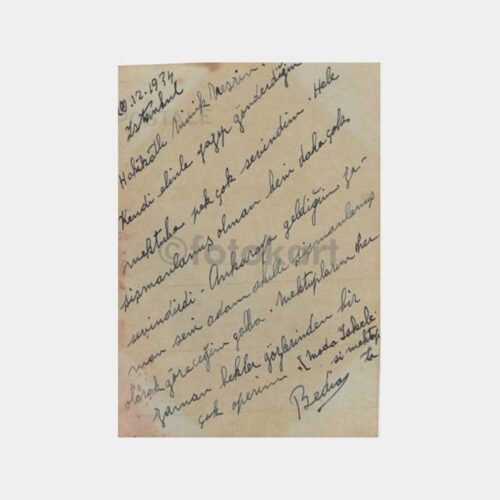 20.12.1934
İstanbul
Hakikatlı Minik Nesrin.
Kendi elinle yazıp gönderdiğin
mektuba pek çok sevindim. Hele
şişmanlamış olman beni daha çok
sevindirdi. Ankaraya geldiğim za-
man seni adam akıllı şişmanlamış
olarak göreceğim galba. Mektuplarını her
zaman bekler gözlerinden bir
çok operim. [Moda İskele
si mektep
ta
Bedia
©fotokart